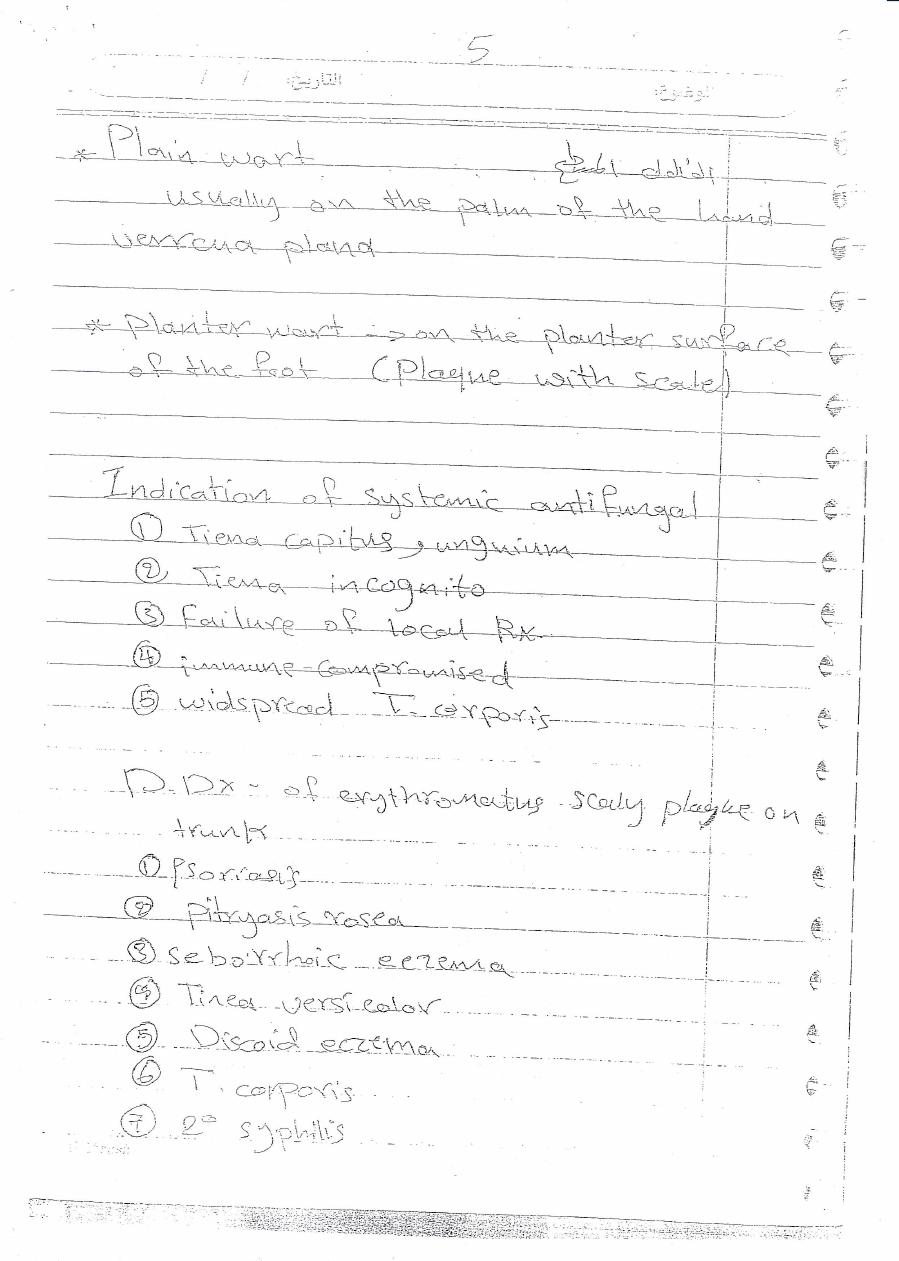 5
التاريخ: / /
الموضوع:
* Plain wart الثالول المسطح
usually on the palm of the hand
verrcua pland
* Planter wart -> on the planter surface
of the foot (Plaque with scale)
Indication of systemic antifungal
① Tiena capitus, unguium
② Tiena incognito
③ Failure of local Rx
④ immune-compromised
⑤ widspread T. corporis
D.Dx - of erythromatus scaly plaque on
trunk
① Psoriasis
② Pitryasis rosea
③ Seborrhoic eczema
④ Tinea versicolor
⑤ Discoid eczema
⑥ T. corporis
⑦ 2° syphilis